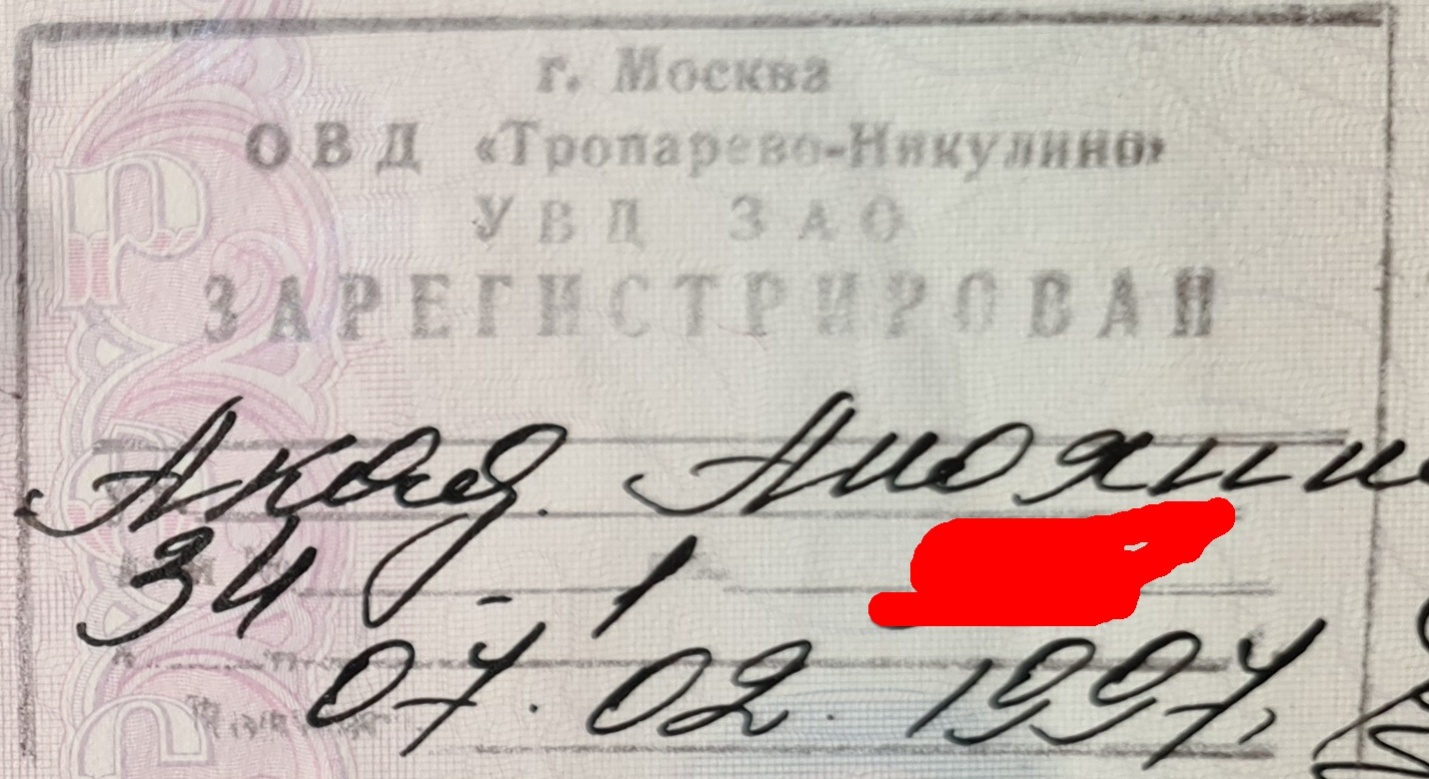 г. Москва
ОВД «Тропарево-Никулино»
УВД ЗАО
ЗАРЕГИСТРИРОВАН
Акад. Анохин
34 - 1
07.02.1997